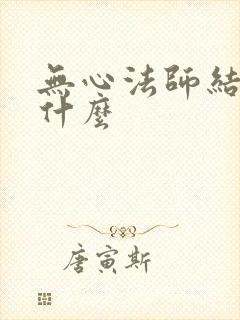 無心法師結
什麼
唐寅斯